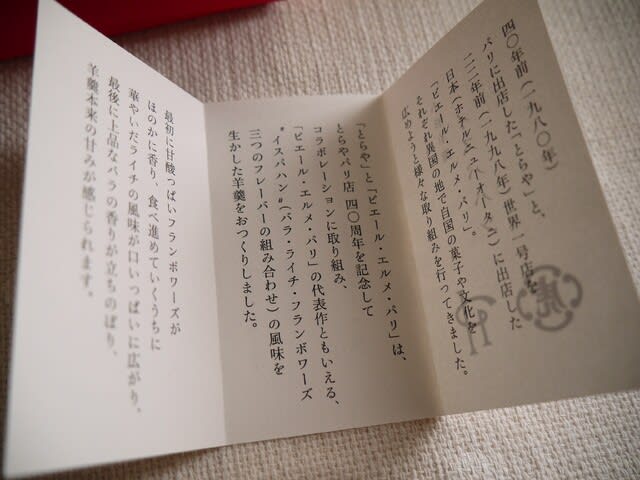 四〇年前（一九八〇年）
パリに出店した「とらや」と、
二二年前（一九九八年）世界一号店を
日本（ホテルニューオータニ）に出店した
「ピエール・エルメ・パリ」。
それぞれ異国の地で自国の菓子や文化を
広めようと様々な取り組みを行ってきました。
「とらや」と「ピエール・エルメ・パリ」は、
とらやパリ店 四〇周年を記念して
コラボレーションに取り組み、
「ピエール・エルメ・パリ」の代表作ともいえる、
〝イスパハン〟（バラ・ライチ・フランボワーズ
三つのフレーバーの組み合わせ）の風味を
生かした羊羹をおつくりしました。
最初に甘酸っぱいフランボワーズが
ほのかに香り、食べ進めていくうちに
華やいだライチの風味が口いっぱいに広がり、
最後に上品なバラの香りが立ちのぼり、
羊羹本来の甘みが感じられます。